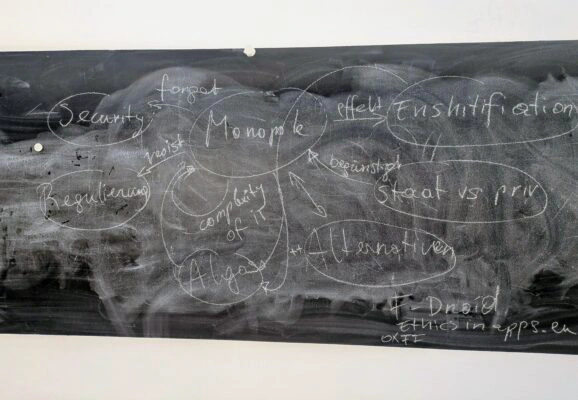 forget
Security
Monopole
effekt
Enshitifiation
resist
Regulierung
begünstigt
Staat vs priv
complexity
of it
++
Alternativen
Algos
F-Droid
Ethics in apps.eu